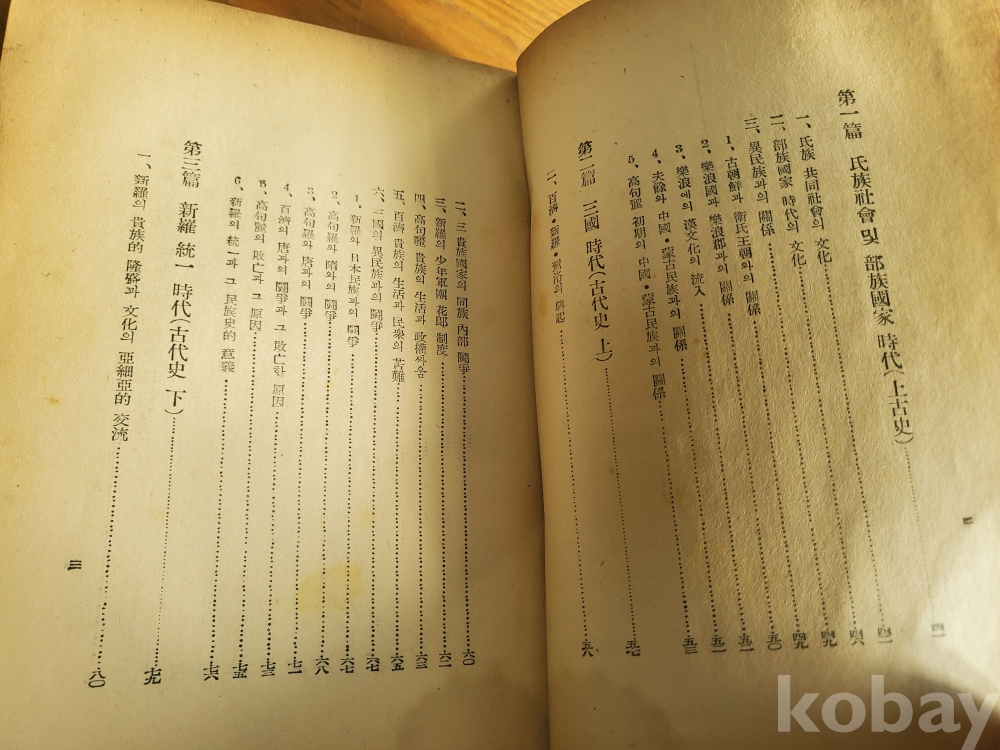 第一篇 氏族社會및 部族國家 時代(上古史)……四一
一、氏族 共同社會의 文化……四一
二、部族國家 時代의 文化……四六
三、異民族과의 關係……四九
1、古朝鮮과 衛氏王朝와의 關係……四九
2、樂浪國과 樂浪郡과의 關係……五〇
3、樂浪에의 漢文化의 流入……五一
4、夫餘와 中國・蒙古民族과의 關係……五一
5、高句麗 初期의 中國・蒙古民族과의 關係……五三
第二篇 三國 時代(古代史 上)……五七
一、百濟・新羅・駕洛의 興起……五八
二、三 貴族國家의 同族 內部 鬪爭……六〇
三、新羅의 少年軍團 花郞 制度……六一
四、高句麗 貴族의 生活과 政權싸움……六三
五、百濟 貴族의 生活과 民衆의 苦難……六五
六、三國의 異民族과의 鬪爭……六七
1、新羅와 日本民族과의 鬪爭……六七
2、高句麗와 隋와의 鬪爭……六八
3、高句麗와 唐과의 鬪爭……七一
4、百濟의 唐과의 鬪爭과 그 敗亡한 原因……七三
5、高句麗의 敗亡과 그 原因……七五
6、新羅의 統一과 그 民族史的 意義……七六
第三篇 新羅 統一 時代(古代史 下)……七九
一、新羅의 貴族的 隆盛과 文化의 亞細亞的 交流……八〇
三
kobay